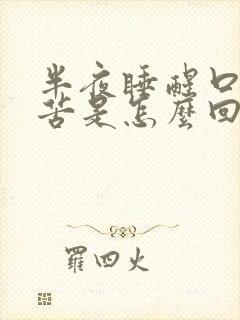 半夜睡醒口
苦是怎麼回
羅四火